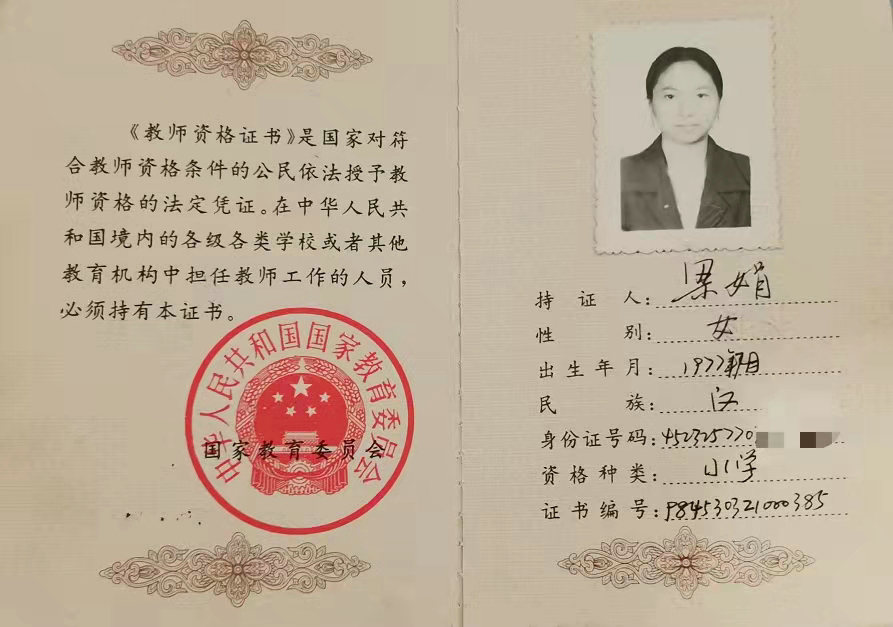 《教师资格证书》是国家对符
合教师资格条件的公民依法授予教
师资格的法定凭证。在中华人民共
和国境内的各级各类学校或者其他
教育机构中担任教师工作的人员，
必须持有本证书。
中华人民共和国国家教育委员会
国家教育委员会
持证人：梁娟
性别：女
出生年月：1977年 月
民族：汉
身份证号码：452325770
资格种类：小学
证书编号：984530321000385